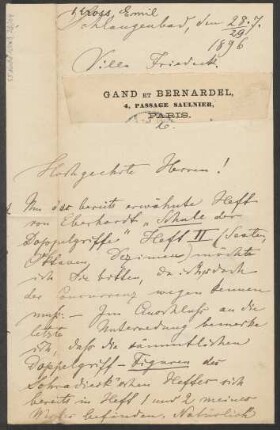 Kross, Emil
Schlangenbad, den 28.7.
29
1896
Villa Friedeck.
GAND ET BERNARDEL,
4, PASSAGE SAULNIER,
PARIS.
Hochgeehrte Herren!
Um das bereits erwähnte Heft
von Eberhardt „Schule der
Doppelgriffe" Heft II (Sexten,
Oktaven, Dezimen) möchte
ich Sie bitten, da ich
der Concurrenz wegen kennen
muß. — Im Anschluß an die
letzte Unterredung bemerke
ich, daß die sämmtlichen
Doppelgriff-Figuren der
Schradieck'schen Hefte sich
bereits in Heft 1 und 2 meiner
befinden. Natürlich